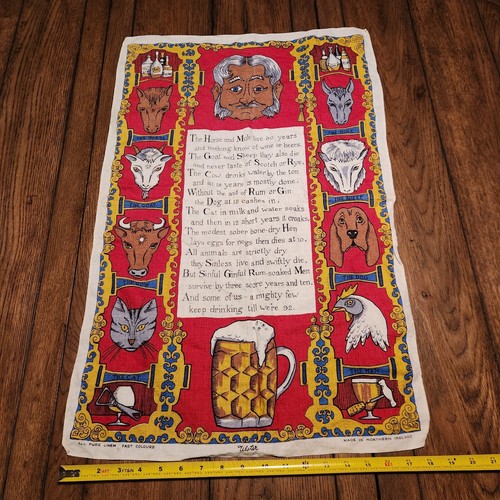 The Horse and Mule live 30 years
and nothing know of wine or beers.
The Goat and Sheep they also die
and never taste of Scotch or Rye.
The Cow drinks water by the ton
and so 18 years is mostly done.
Without the aid of Rum or Gin
the Dog at 15 cashes in;
The Cat in milk and water soaks
and then in 12 short years it croaks.
The modest sober bone-dry Hen
lays eggs for nogs then dies at 10.
All animals are strictly dry
they Sinless live and swiftly die.
But Sinful Ginful Rum-soaked Men
survive by three score years and ten.
And some of us - a mighty few
keep drinking till we're 92.
THE HORSE
THE MULE
THE GOAT
THE SHEEP
THE COW
THE DOG
THE CAT
THE HEN
ALL PURE LINEN FAST COLOURS
Ulster
MADE IN NORTHERN IRELAND
2 3 4 5 6 7 8 9 10 11 12 13 14 15 16 17 18 19 20 21